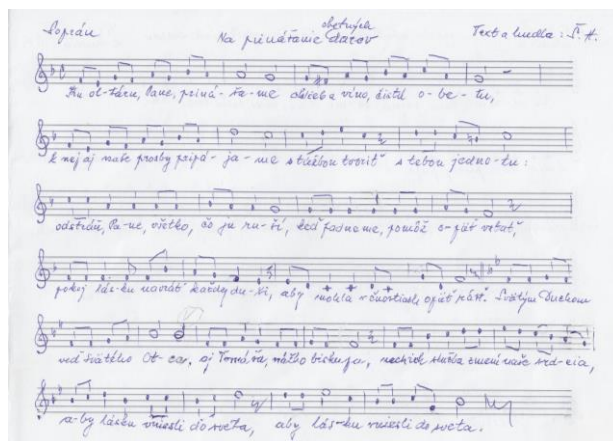 Soprán
Na prinášanie obetných darov
Text a hudba: Š. H.
Na oltáru, Pane, priná-ša-me chlieb a víno, čistú o-be-tu,
k nej aj naše prosby pripá-ja-me s túžbou tvoriť s tebou jedno-tu:
odstráň, Pa-ne, všetko, čo ju ru-ší, keď padneme, pomôž o-päť vstať,
pokoj lás-ku navráť každej du-ši, aby mohla v čnostiach opäť rásť. Svätým Duchom
veď svätého Ot-ca, aj Tomáša, nášho biskupa, nech ich služba zmení naše srd-cia,
a-by lásku vniesli do sveta, aby lás-ku vniesli do sveta.